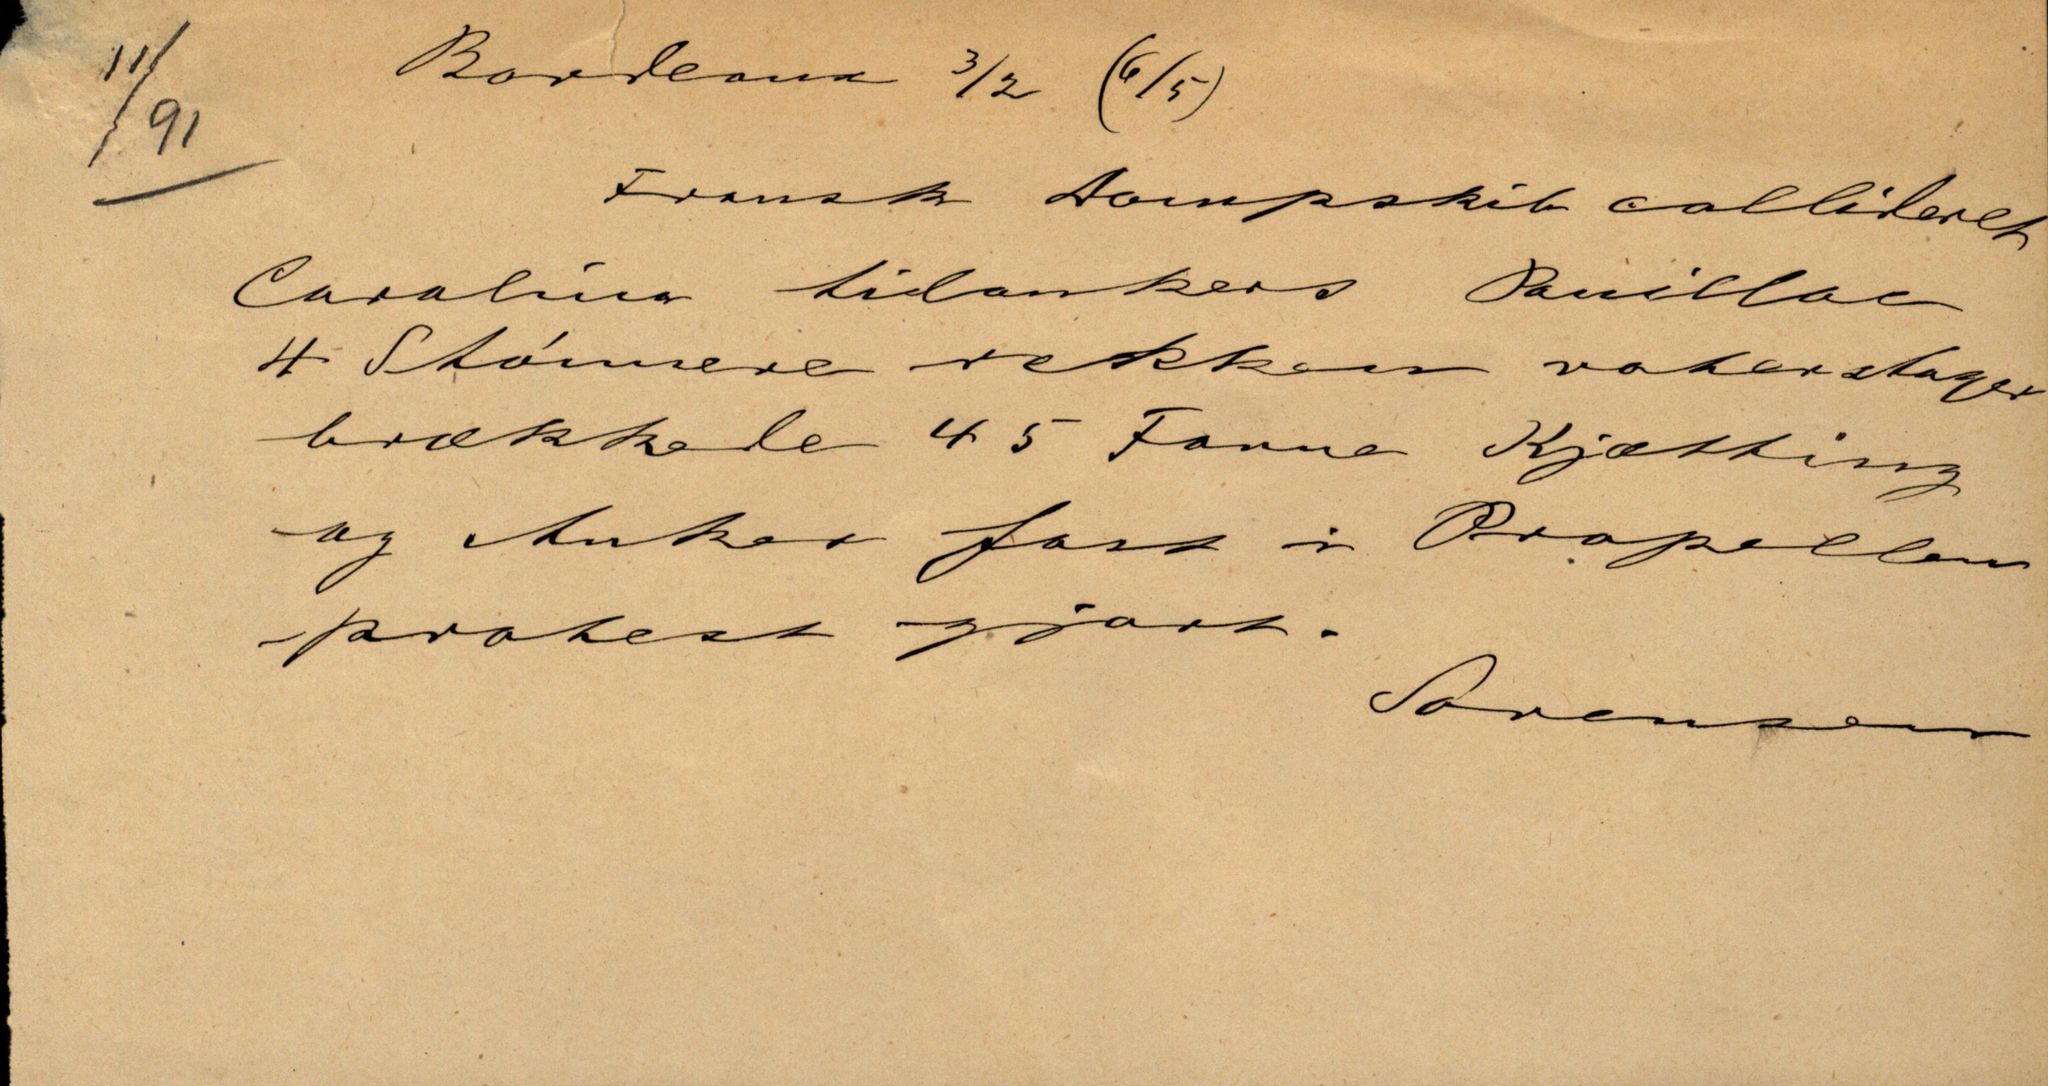 11/91
Bordeaux 3/2 (6/5)
Fransk Dampskib collideret
Carolina tilankers Pauillac
4 Stönnere rekken vaterstager
brækkede 45 Favne Kjætting
og Anker fast i Propellen
protest gjort.
Sørensen